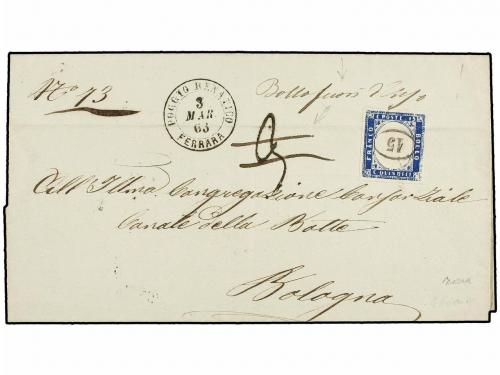 No 73
POGGIO RENATICO
3
MAR
63
FERRARA
Bollo fuori d'uso
C. POSTE 15
FRANCO
BOLLO
C. QUINDICI
15
All' Illma Congregazione Consorziale
Canale della Botte
Bologna